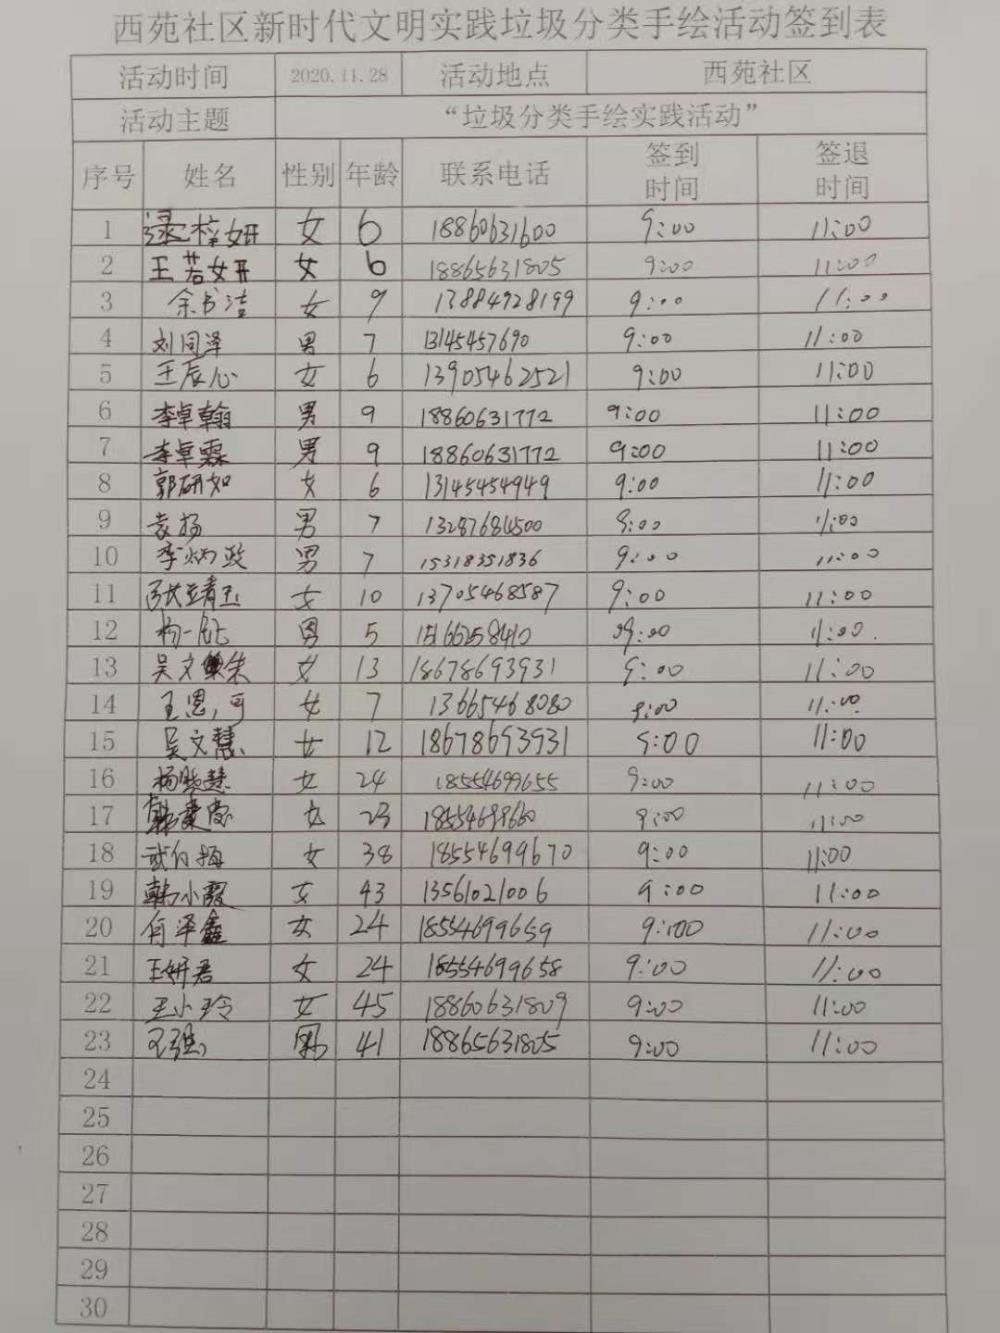 西苑社区新时代文明实践垃圾分类手绘活动签到表
活动时间 2020.11.28 活动地点 西苑社区
活动主题 “垃圾分类手绘实践活动”
序号 姓名 性别 年龄 联系电话 签到时间 签退时间
1 梓妍 女 6 18860631600 9:00 11:00
2 王若妍 女 6 18865631805 9:00 11:00
3 余书洁 女 9 13884928199 9:00 11:00
4 刘同泽 男 7 13145457690 9:00 11:00
5 王辰心 女 6 13905462521 9:00 11:00
6 李卓翰 男 9 18860631772 9:00 11:00
7 李卓霖 男 9 18860631772 9:00 11:00
8 郭研如 女 6 13145454949 9:00 11:00
9 袁扬 男 7 13287684500 9:00 11:00
10 李炳政 男 7 15318351836 9:00 11:00
11 张靖玉 女 10 13705468587 9:00 11:00
12 杨一 男 5 15166258410 9:00 11:00
13 吴文 女 13 18678693931 9:00 11:00
14 王恩可 女 7 13665468080 9:00 11:00
15 吴文慧 女 12 18678693931 9:00 11:00
16 杨晓慧 女 24 18554699655 9:00 11:00
17 韩 女 23 18554699660 9:00 11:00
18 武 梅 女 38 18554699670 9:00 11:00
19 韩小霞 女 43 13561021006 9:00 11:00
20 何泽鑫 女 24 18554699659 9:00 11:00
21 王妍君 女 24 18554699658 9:00 11:00
22 王小玲 女 45 18860631809 9:00 11:00
23 王强 男 41 18865631805 9:00 11:00
24
25
26
27
28
29
30